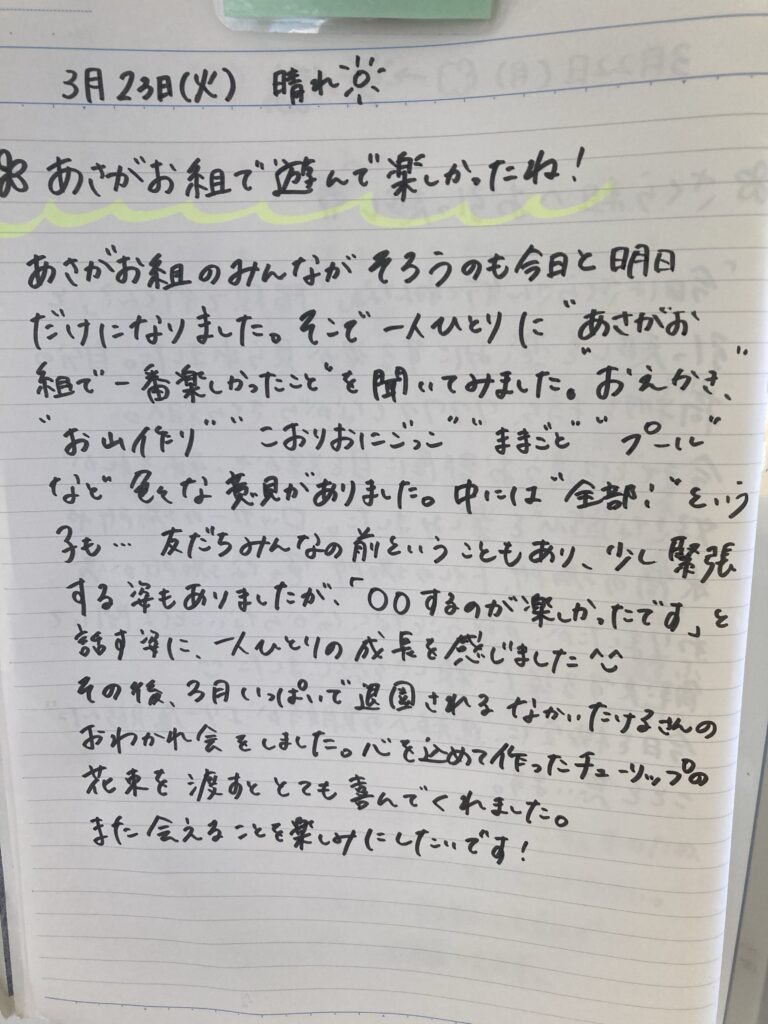 3月23日(火) 晴れ
あさがお組で遊んで楽しかったね!
あさがお組のみんながそろうのも今日と明日
だけになりました。そこで一人ひとりに"あさがお
組で一番楽しかったこと"を聞いてみました。"おえかき"、
"お山作り" "こおりおにごっこ" "ままごと" "プール"
など色々な意見がありました。中には"全部!"という
子も… 友だちみんなの前ということもあり、少し緊張
する姿もありましたが、「〇〇するのが楽しかったです」と
話す姿に、一人ひとりの成長を感じました^^
その後、3月いっぱいで退園されるなかいたけるさんの
おわかれ会をしました。心を込めて作ったチューリップの
花束を渡すととても喜んでくれました。
また会えることを楽しみにしたいです!